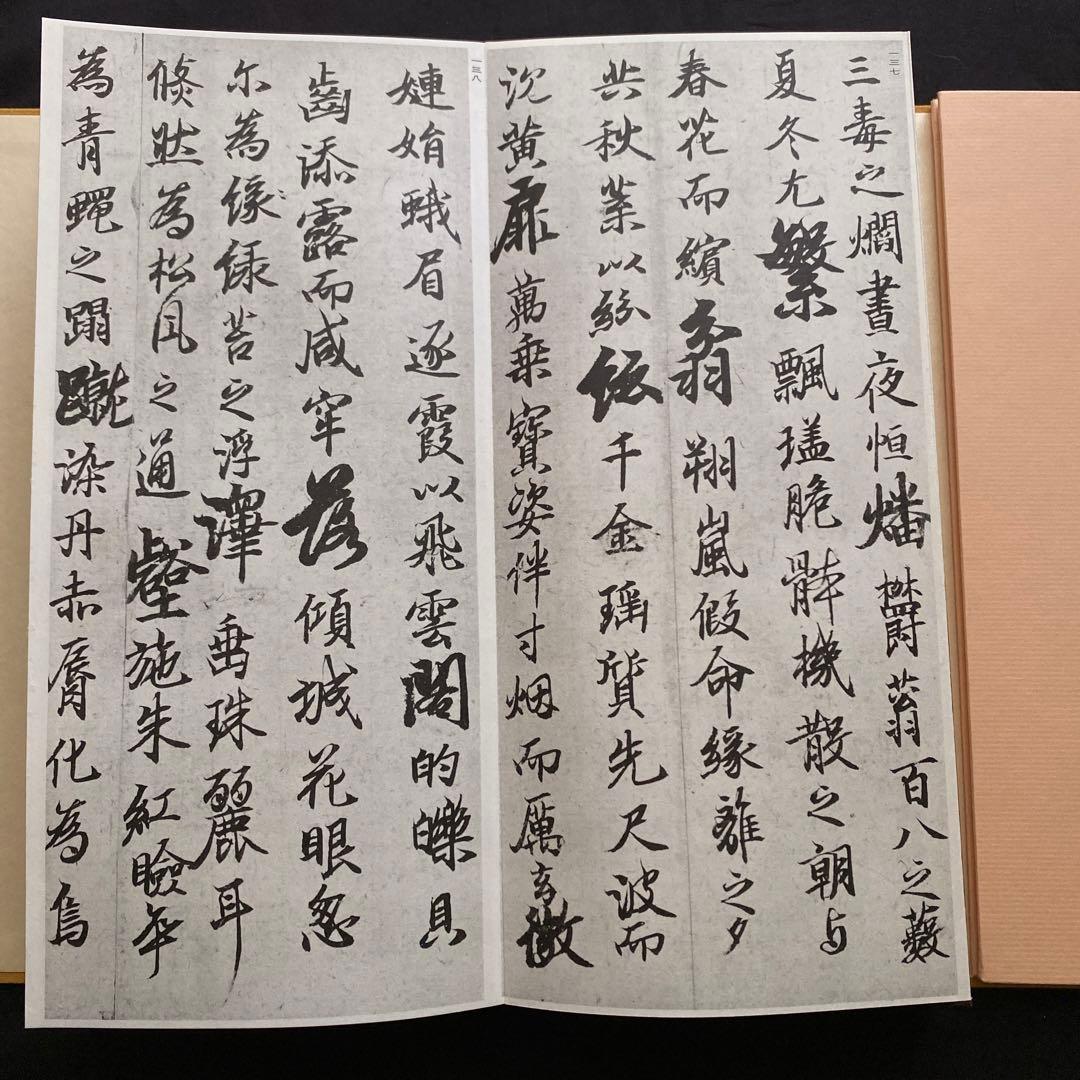 一三七
三毒之爓晝夜恒燔欝蓊百八之藪
夏冬尤繁飄瑶脆體機散之朝与
春花而繽翕翔嵐假命緣離之夕
共秋葉以紛紜千金瑶質先尺波而
沈黄扉萬乗寶姿伴寸烟而厲玄微
一三八
嬋娟蛾眉逐霞以飛雲閣的皪貝
齒添露而咸窂落傾城花眼忽
尓為緣緑苔之浮澤垂珠麗耳
倏然為松風之通壑施朱紅瞼卒
為青蠅之蹋蹴染丹赤脣化為烏